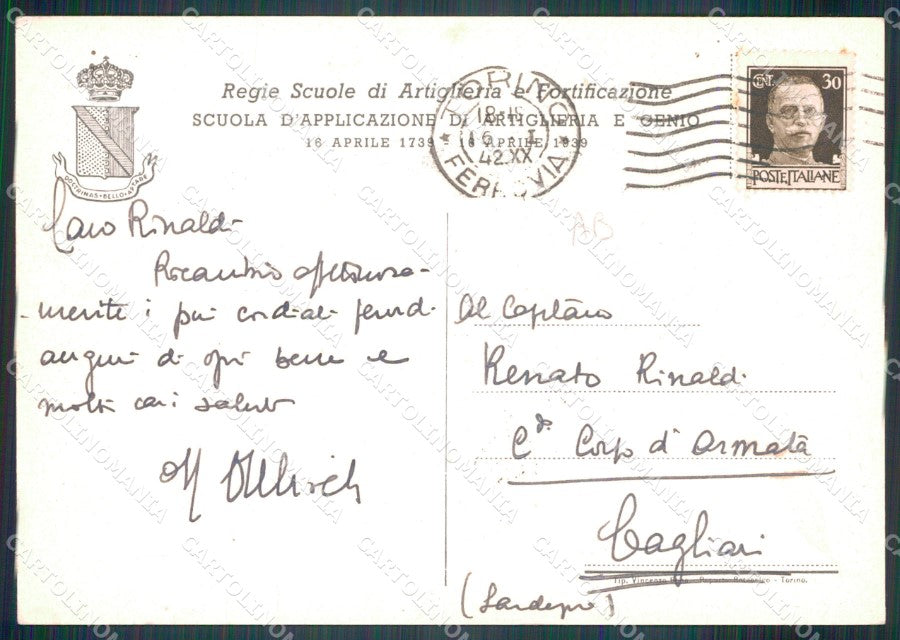 Regie Scuole di Artiglieria e Fortificazione
SCUOLA D'APPLICAZIONE DI ARTIGLIERIA E GENIO
16 APRILE 1739 - 16 APRILE 1939
DOCTRINAS·BELLO·APTARE
TORINO
18-
16 - I
42.XX
FERROVIA
CENT. 30
POSTE ITALIANE
AB
Caro Rinaldi
Ricambio affettuosa-
-mente i più cordiali
auguri di ogni bene e
molti cari saluti
Al Capitano
Renato Rinaldi
C.do Corpo d'Armata
Cagliari
Tip. Vincenzo - Torino.
(Sardegna)
CARTOLINOMANIA